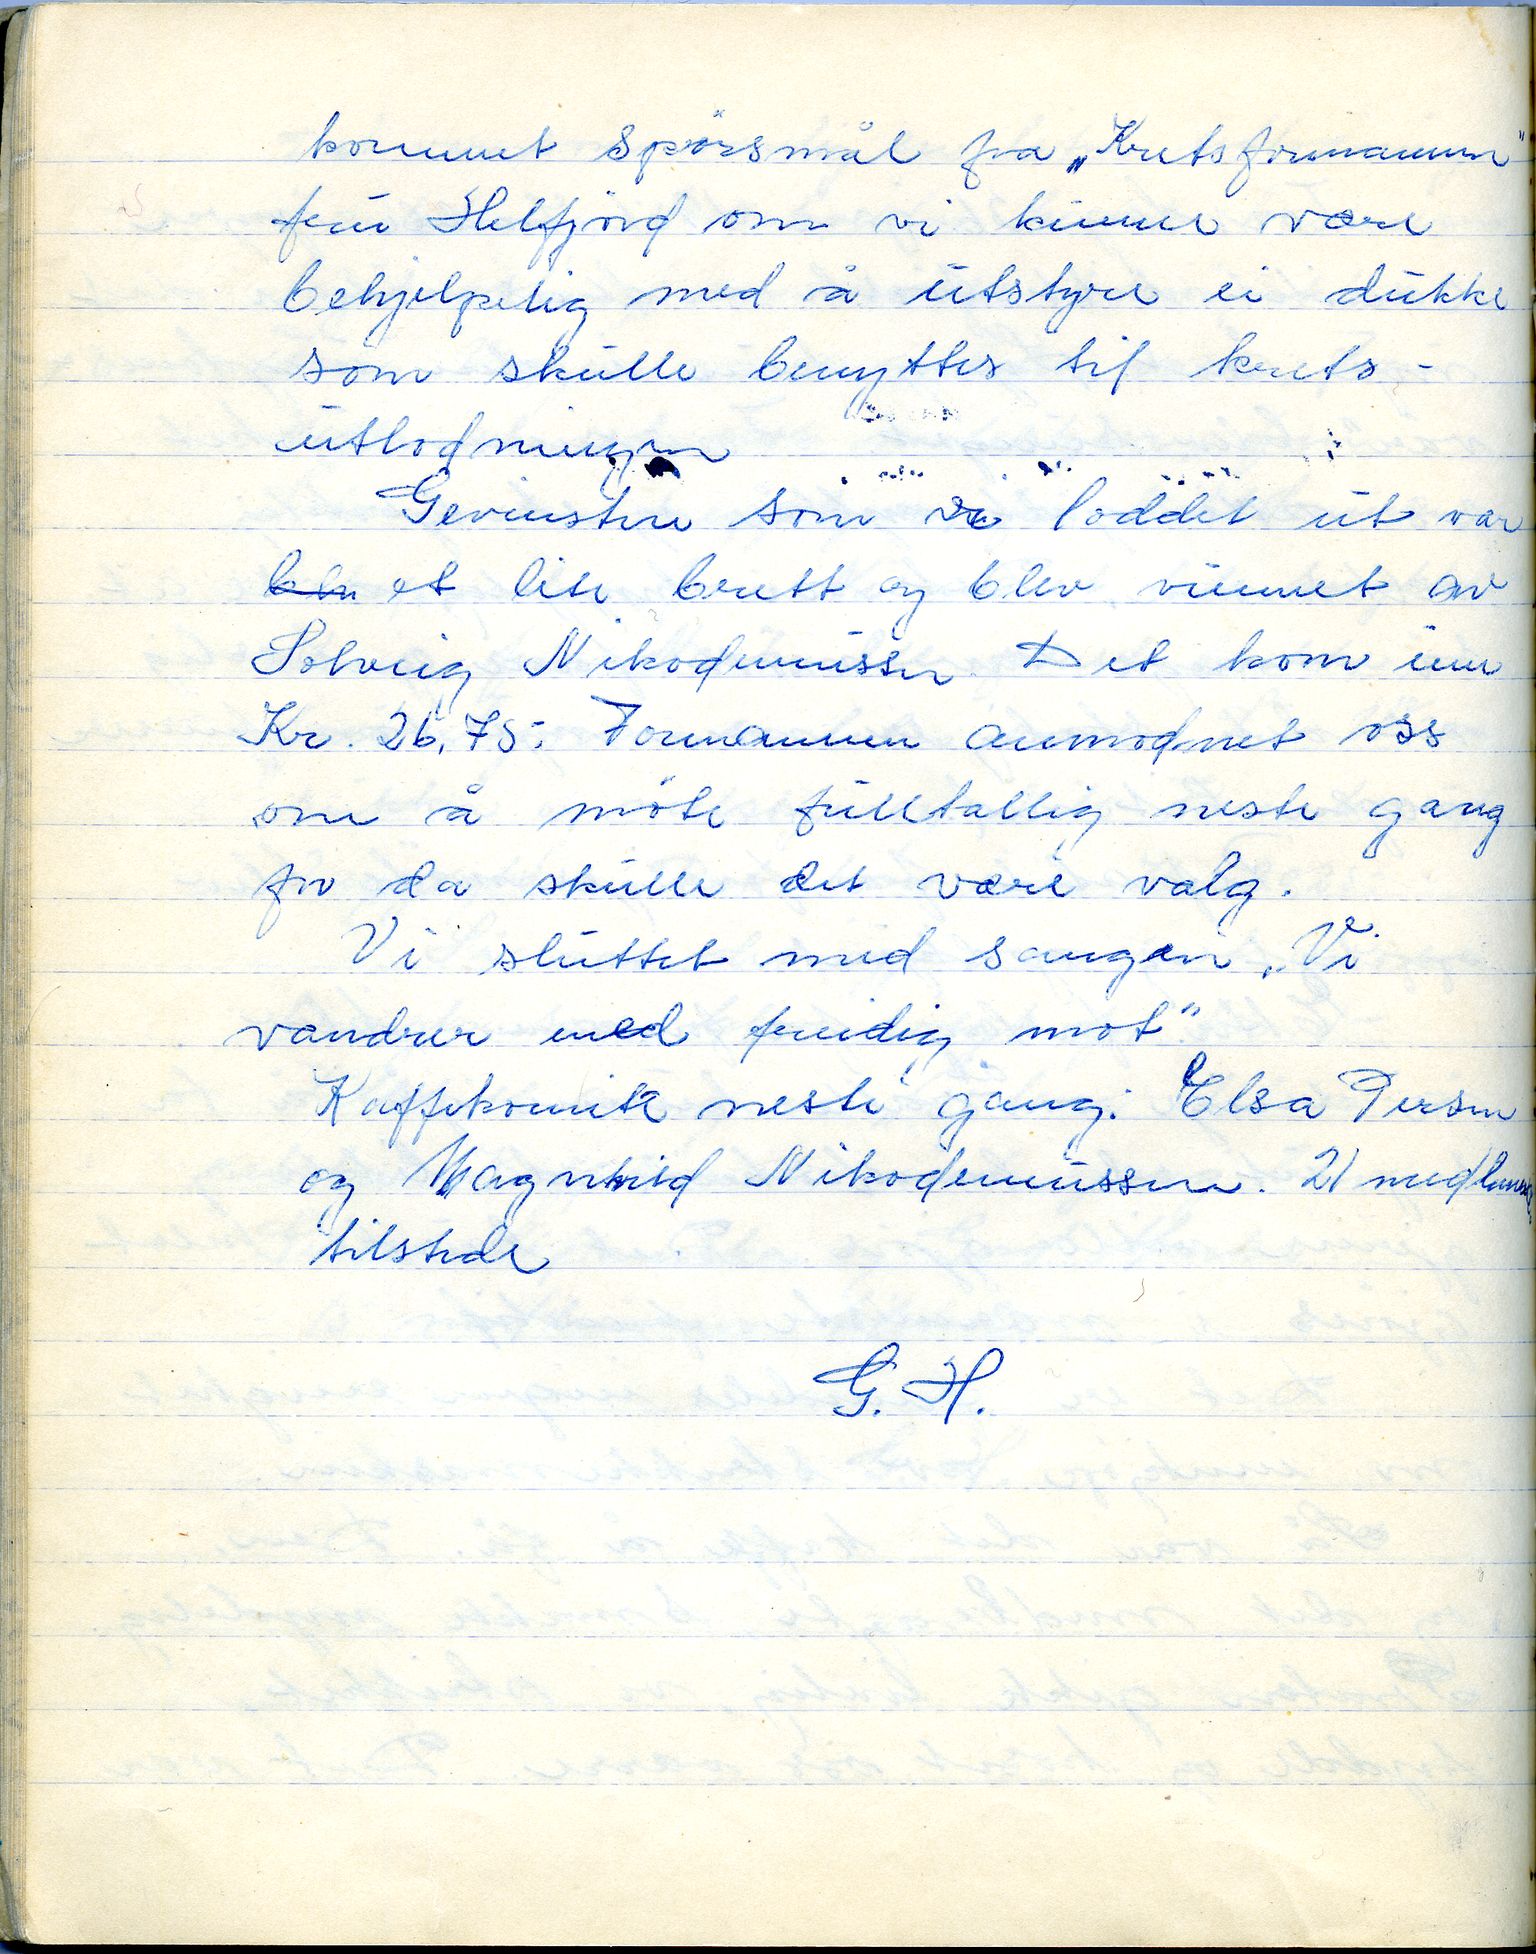 kommet spörsmål fra „Kretsformannen"
fru Helfjord om vi kunne være
behjelpelig med å utstyre ei dukke
som skulle benyttes til krets-
utlodningen
Gevinsten som vi loddet ut var
et lite brett og blev vunnet av
Solveig Nikodemussen. Det kom inn
Kr. 26,75; Formannen anmodnet oss
om å möte fulltallig neste gang
for da skulle det være valg.
Vi sluttet med sangen „Vi
vandrer med freidig mot"
Kaffekomite neste gang: Elsa Persen
og Magnhild Nikodemussen. 21 medlemmer
tilstede
G. H.